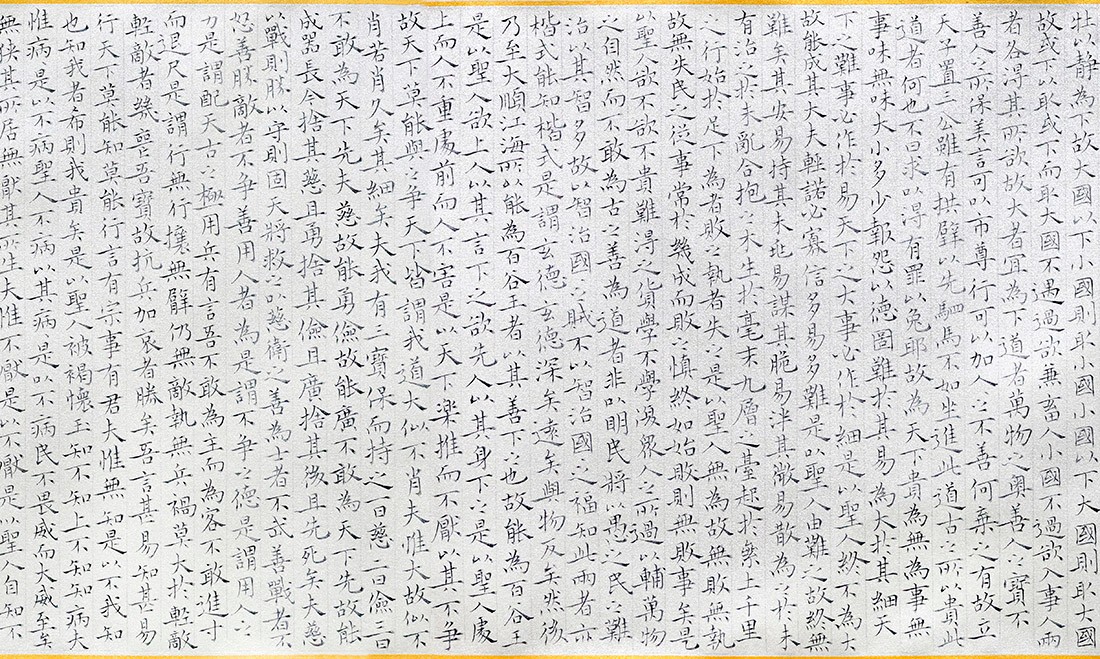 牡以静為下故大國以下小國則取小國小國以下大國則取大國
故或下以取或下而取大國不遇過欲兼畜人小國不過欲入事人兩
者各得其所欲故大者宜為下道者萬物之奧善人之寶不
善人之所保美言可以市尊行可以加人之不善何棄之有故立
天子置三公雖有拱璧以先駟馬不如坐進此道古之所以貴此
道者何也不曰求得有罪以免耶故為天下貴為無為事無
事味無味大小多少報怨以德圖難於其易為大於其細天
下之難事必作於易天下之大事必作於細是以聖人終不為大
故能成其大夫輕諾必寡信多易多難是以聖人由難之故終無
難矣其安易持其未兆易謀其脆易泮其微易散為之於未
有治之於未亂合抱之木生於毫末九層之臺起於累土千里
之行始於足下為者敗之執者失之是以聖人無為故無敗無執
故無失民之從事常於幾成而敗之慎終如始敗則無敗事矣是
以聖人欲不欲不貴難得之貨學不學復眾人之所過以輔萬物
之自然而不敢為古之善為道者非以明民將以愚之民之難
治以其智多故以智治國之賊不以智治國之福知此兩者亦
楷式能知楷式是謂玄德玄德深矣遠矣與物反矣然後
乃至大順江海所以能為百谷王者以其善下之也故能為百谷王
是以聖人欲上人以其言下之欲先人以其身下之是以聖人處
上而人不重處前而人不害是以天下樂推而不厭以其不爭
故天下莫能與之爭天下皆謂我道大似不肖夫惟大故似不
肖若肖久矣其細矣夫我有三寶保而持之一曰慈二曰儉三曰
不敢為天下先夫慈故能勇儉故能廣不敢為天下先故能
成器長今捨其慈且勇捨其儉且廣捨其後且先死矣夫慈
以戰則勝以守則固天將救之以慈衛之善為士者不武善戰者不
怒善勝敵者不爭善用人者為是謂不爭之德是謂用人之
力是謂配天古之極用兵有言吾不敢為主而為客不敢進寸
而退尺是謂行無行攘無臂仍無敵執無兵禍莫大於輕敵
輕敵者幾喪吾寶故抗兵加哀者勝矣吾言甚易知甚易
行天下莫能知莫能行言有宗事有君夫惟無知是以不我知
也知我者希則我貴矣是以聖人被褐懷玉知不知上不知知病夫
惟病是以不病聖人不病以其病是以不病民不畏威而大威至矣
無狹其所居無厭其所生夫惟不厭是以不厭是以聖人自知不